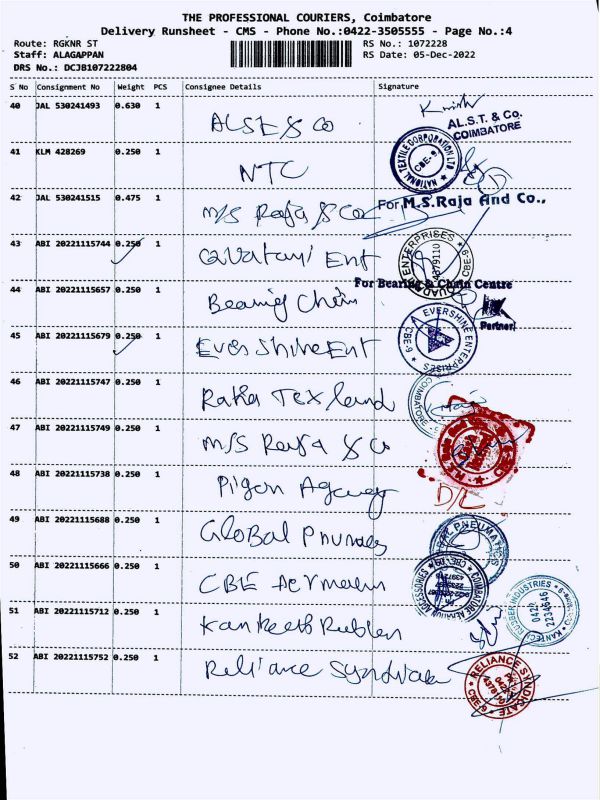 THE PROFESSIONAL COURIERS, Coimbatore
Delivery Runsheet - CMS - Phone No.:0422-3505555 - Page No.:4
Route: RGKNR ST RS No.: 1072228
Staff: ALAGAPPAN RS Date: 05-Dec-2022
DRS No.: DCJB107222804
S No Consignment No Weight PCS Consignee Details Signature
40 JAL 530241493 0.630 1 ALSE & Co AL.S.T. & Co. COIMBATORE
41 KLM 428269 0.250 1 NTC NATIONAL TEXTILE CORPORATION LTD CBE-9
42 JAL 530241515 0.475 1 M/s Raja & Co For M.S.Raja And Co.,
43 ABI 20221115744 0.250 1 Ent ENTERPRISES 4379110
44 ABI 20221115657 0.250 1 Bearing Chain For Bearing & Chain Centre Partner
45 ABI 20221115679 0.250 1 Ever Shine Ent EVERSHINE ENTERPRISES CBE-9
46 ABI 20221115747 0.250 1 Raka Tex land COIMBATORE
47 ABI 20221115749 0.250 1 M/S Raja & Co
48 ABI 20221115738 0.250 1 Pigon Agency D/L
49 ABI 20221115688 0.250 1 Global PNEUMATICS
50 ABI 20221115666 0.250 1 CBE COIMBATORE AGENCIES
51 ABI 20221115712 0.250 1 RUBBER INDUSTRIES 0422 2234646
52 ABI 20221115752 0.250 1 Reliance RELIANCE SYNDICATE CBE-9